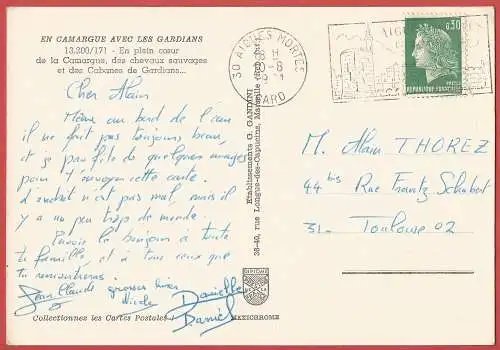 EN CAMARGUE AVEC LES GARDIANS
13.200/171 - En plein cœur
de la Camargue, des chevaux sauvages
et des Cabanes de Gardians...
Cher Alain
Même au bord de l'eau
il ne fait pas toujours beau,
et je profite de quelques nuages
pour t'envoyer cette carte.
L'endroit n'est pas mal, mais il
y a un peu trop de monde.
Envoie le bonjour à toute
ta famille, et à tous ceux que
tu rencontreras.
Jean Claude grosses bises
Nicole Danielle
Daniel
Collectionnez les Cartes Postales
MEXICHROME
Etablissements G. GANDINI
38-40, rue Longue-des-Capucins, Marseille
30 AIGUES MORTES
GARD
0,30
REPUBLIQUE FRANÇAISE
M. Alain THOREZ
44 bis Rue Frantz Schubert
31. Toulouse 02